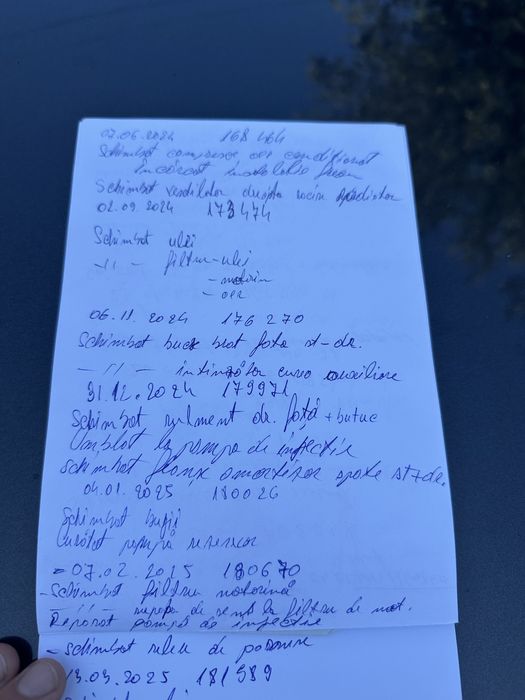 07.06.2024 168 464
Schimbat compresor aer condiționat
Încărcat instalație freon
Schimbat ventilator racire radiator
02.09.2024 173474
Schimbat ulei
-11- filtru-ulei
- motorin
- aer
06.11.2024 176 270
Schimbat buck brat fata st-dr.
-11- intinzător curea auxiliare
31.12.2024 179971
Schimbat rulment dr. fată + butuc
Umblat la pompa de injecție
Schimbat flanșă amortizor spate st+dr.
04.01.2025 180026
Schimbat bujii
Curățat pompă rezervor
-07.02.2025 180670
-Schimbat filtru motorină
-11- de la filtru de mot.
Reparat pompă de injectie
- schimbat releu de pornire
13.03.2025 181589